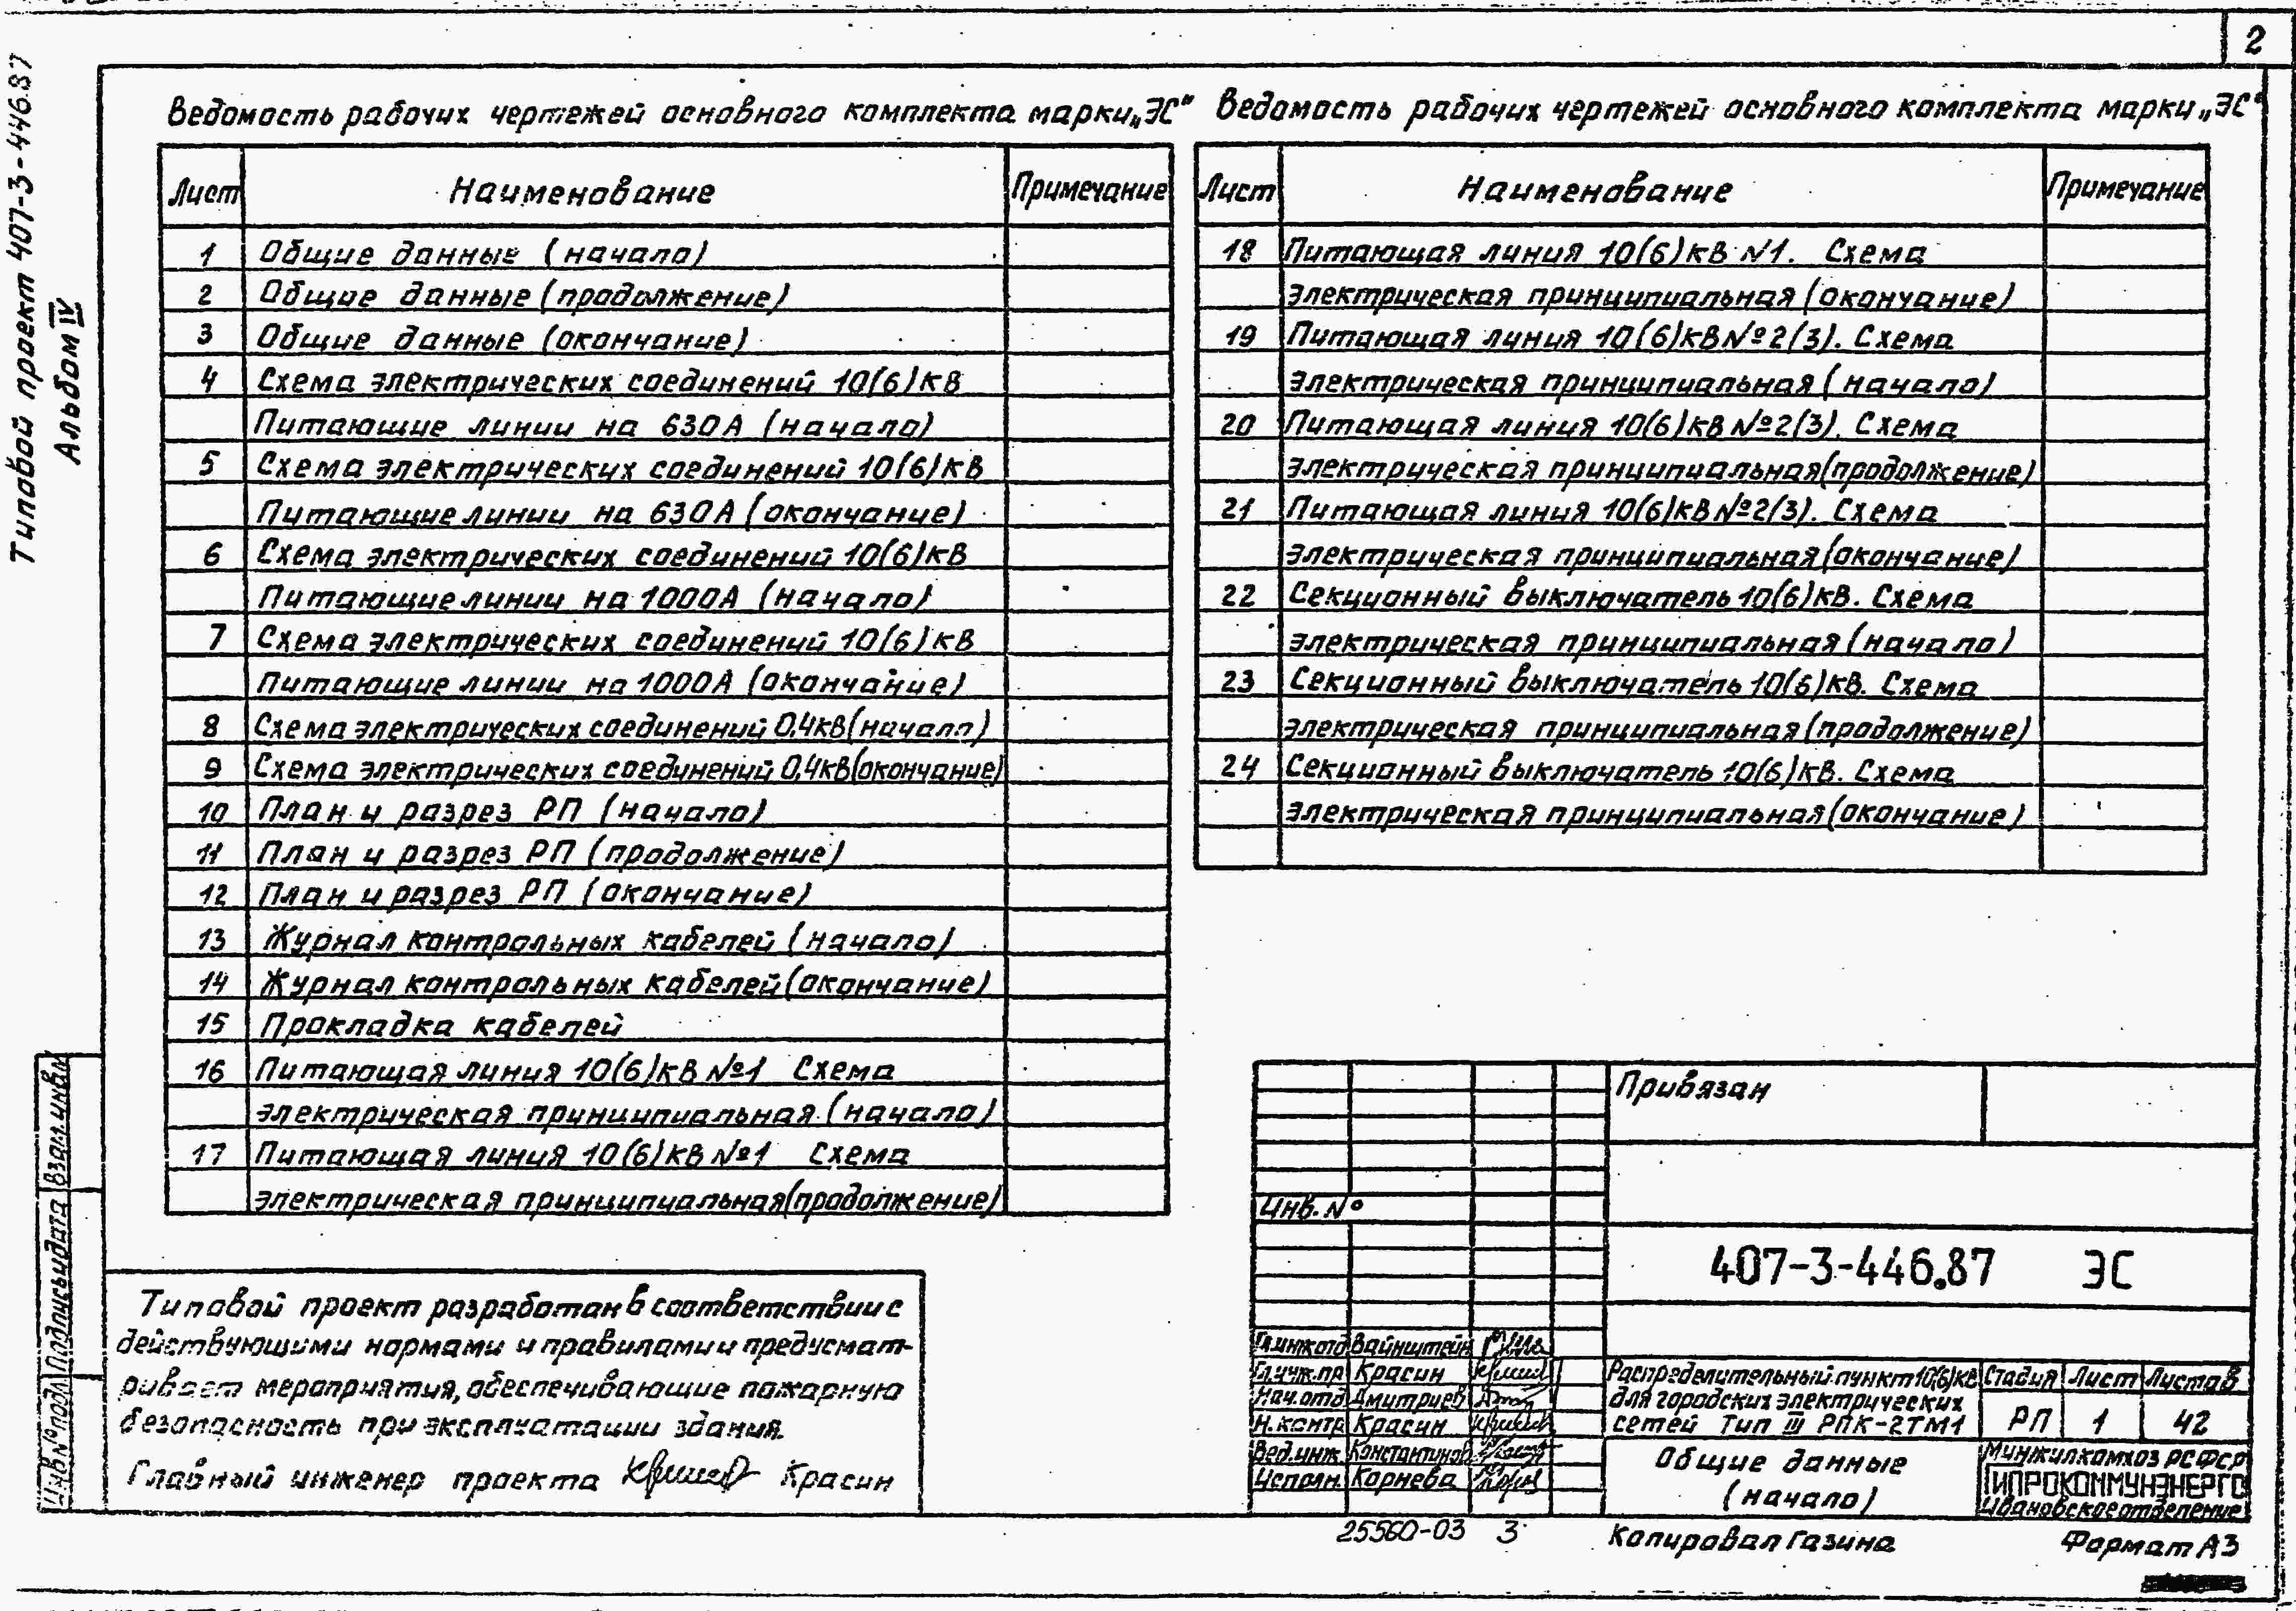 2
Типовой проект 407-3-446.87
Альбом IV
Ведомость рабочих чертежей основного комплекта марки „ЭС"
Лист Наименование Примечание
1 Общие данные (начало)
2 Общие данные (продолжение)
3 Общие данные (окончание)
4 Схема электрических соединений 10(6)кВ
Питающие линии на 630А (начало)
5 Схема электрических соединений 10(6)кВ
Питающие линии на 630А (окончание)
6 Схема электрических соединений 10(6)кВ
Питающие линии на 1000А (начало)
7 Схема электрических соединений 10(6)кВ
Питающие линии на 1000А (окончание)
8 Схема электрических соединений 0,4кВ (начало)
9 Схема электрических соединений 0,4кВ (окончание)
10 План и разрез РП (начало)
11 План и разрез РП (продолжение)
12 План и разрез РП (окончание)
13 Журнал контрольных кабелей (начало)
14 Журнал контрольных кабелей (окончание)
15 Прокладка кабелей
16 Питающая линия 10(6)кВ №1 Схема
электрическая принципиальная (начало)
17 Питающая линия 10(6)кВ №1 Схема
электрическая принципиальная (продолжение)
Ведомость рабочих чертежей основного комплекта марки „ЭС"
Лист Наименование Примечание
18 Питающая линия 10(6)кВ N1. Схема
электрическая принципиальная (окончание)
19 Питающая линия 10(6)кВ №2(3). Схема
электрическая принципиальная (начало)
20 Питающая линия 10(6)кВ №2(3). Схема
электрическая принципиальная (продолжение)
21 Питающая линия 10(6)кВ №2(3). Схема
электрическая принципиальная (окончание)
22 Секционный выключатель 10(6)кВ. Схема
электрическая принципиальная (начало)
23 Секционный выключатель 10(6)кВ. Схема
электрическая принципиальная (продолжение)
24 Секционный выключатель 10(6)кВ. Схема
электрическая принципиальная (окончание)
Типовой проект разработан в соответствии с
действующими нормами и правилами и предусмат-
ривает мероприятия, обеспечивающие пожарную
безопасность при эксплуатации здания.
Главный инженер проекта Красин
Инв.№ подл Подпись и дата Взам.инв.№
Привязан
Инв.№
407-3-446.87 ЭС
Гл.инж.отд Вайнштейн
Гл.инж.пр. Красин
Нач.отд Дмитриев
Н.контр Красин
Вед.инж. Константинов
Исполн. Корнева
Распределительный пункт 10(6)кВ
для городских электрических
сетей тип III РПК-2ТМ1
Стадия Лист Листов
РП 1 42
Общие данные
(начало)
Минжилкомхоз РСФСР
ГИПРОКОММУНЭНЕРГО
Ивановское отделение
25560-03 3
Копировал Газина
Формат А3